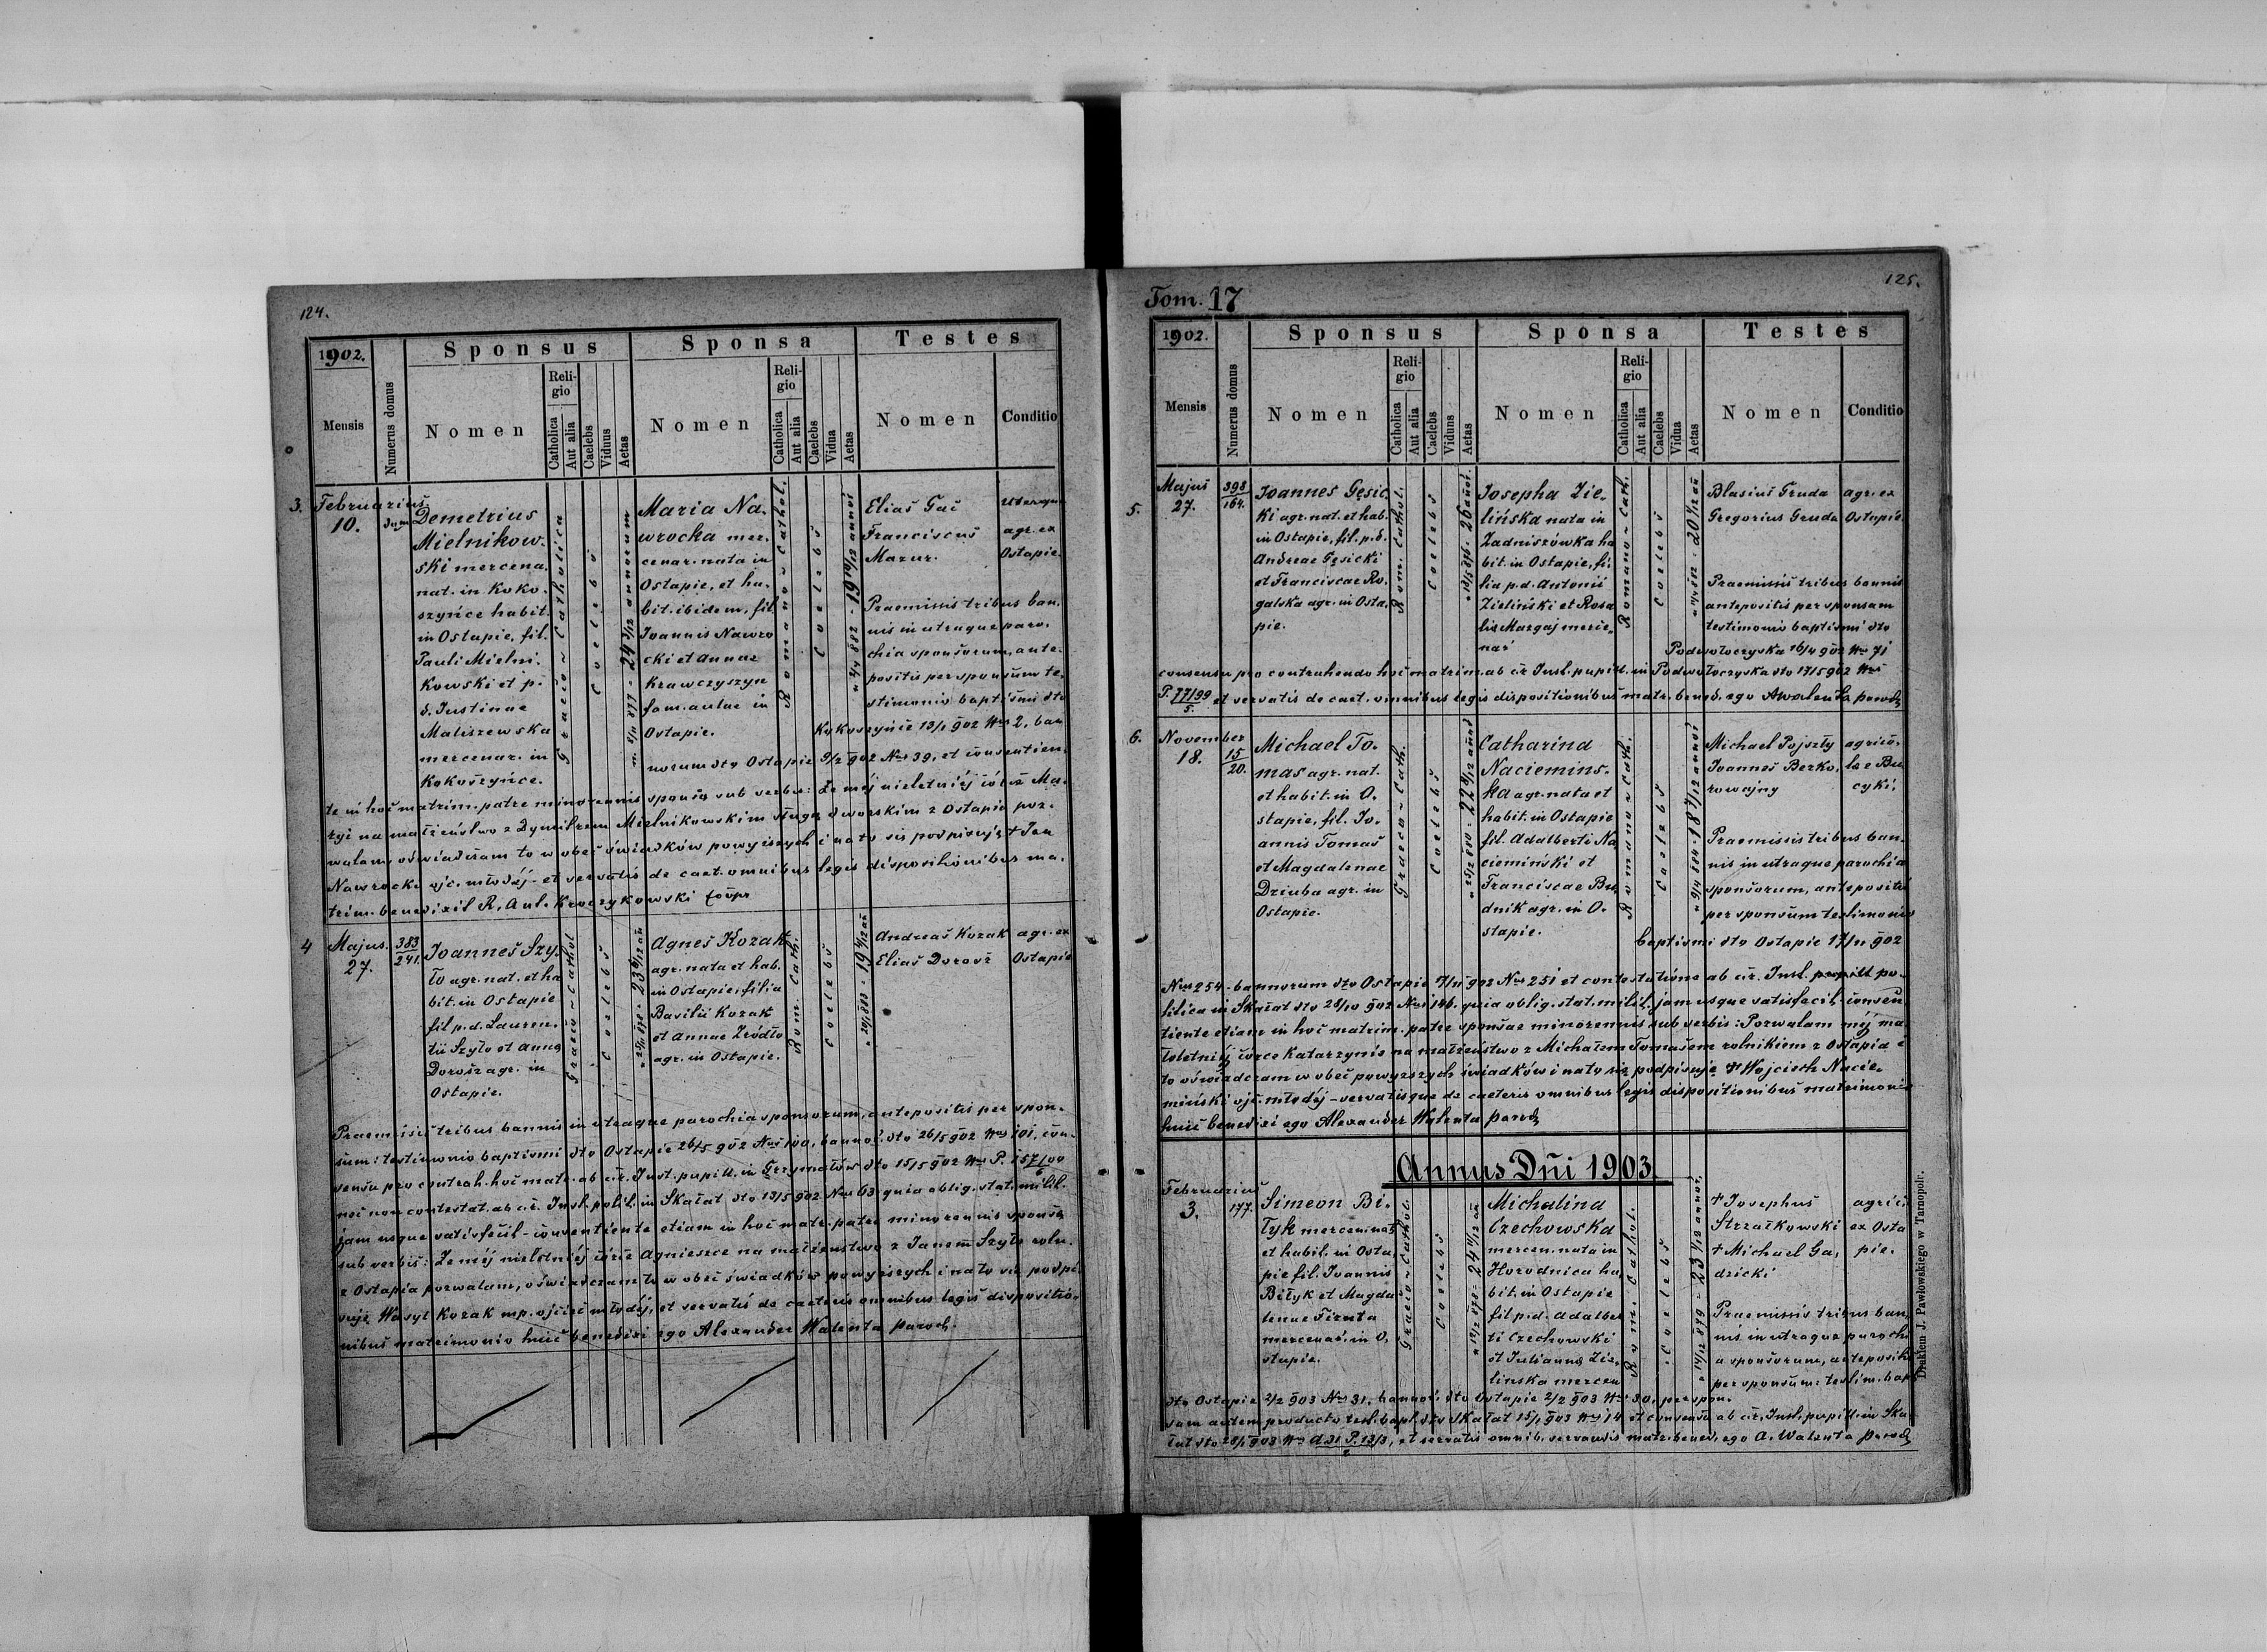 124.
1902.
Sponsus
Sponsa
Testes
Mensis
Numerus domus
Nomen
Religio
Catholica
Aut alia
Caelebs
Viduus
Aetas
Nomen
Religio
Catholica
Aut alia
Caelebs
Vidua
Aetas
Nomen
Conditio
3.
Februarius
10.
Demetrius
Mielnikow-
ski mercena.
nat. in Koko-
szyńce habit.
in Ostapie, fil.
Pauli Mielni-
kowski et p.
d. Justinae
Maliszewska
mercenar. in
Kokoszyńce.
Graeco-Catholica
Coelebs
24 3/12 annorum
Maria Na-
wrocka mer-
cenar. nata in
Ostapie, et ha-
bit. ibidem, fil.
Joannis Nawro
cki et Annae
Krawczyszyn
fam. aulae in
Ostapie.
Romano-Cathol.
Coelebs
19 10/12 annor
Elias Gać
Franciscus
Mazur.
Uterque
agr. ex
Ostapie.
Praemissis tribus ban-
nis in utraque paro-
chia sponsorum, ante-
positis per sponsum te-
stimonio baptismi dto
Kokoszyńce 13/1 902 Nus 2, ban
norum dto Ostapie 9/2 902 Nus 39, et consentien-
te in hoc matrim. patre minorennis sponsae sub verbis: Że mej nieletniéj córce Ma-
ryi na małżeństwo z Dymitrem Mielnikowskim sługą dworskim z Ostapia poz-
walam, oświadczam to w obec świadków powyższych i na to się podpisuję + Jan
Nawrocki ojc. młodéj - et servatis de caet. omnibus legis dispositionibus ma-
trim. benedixit R. Ant. Kroczykowski coop
4
Majus.
27.
383
241.
Joannes Szy-
to agr. nat. et ha
bit. in Ostapie
fil p. d. Lauren-
tii Szyto et Anna
Dorosz agr. in
Ostapie.
Graeco-Cathol
Coelebs
Agnes Kozak
agr. nata et hab.
in Ostapie, filia
Basilii Kozak
et Annae Źródło
agr. in Ostapie.
Rom. Cath.
Coelebs
Andreas Kozak
Elias Dorosz
agr. ex
Ostapie
Praemissis tribus bannis in utraque parochia sponsorum, antepositis per spon-
sum: testimonio baptismi dto Ostapie 26/5 902 Nus 100, bannor. dto 26/5 902 Nus 101, con-
sensu pro contrah. hoc matr. ab c.r. Inst. pupill. in Grzymałów dto 15/5 902 Nus P. 157/00
nec non contestat. ab c.r. Inst. polit. in Skałat dto 13/5 902 Nus 63 quia oblig. stat. milit.
jam usque satisfecit - consentiente etiam in hoc matr. patre minorennis sponsae
sub verbis: Że méj nieletniéj córce Agnieszce na małżeństwo z Janem Szyto roln.
z Ostapia pozwalam, oświadczam to w obec świadków powyższych i na to się podpi-
suję Wasyl Kozak mp. ojciec młodéj, et servatis de caeteris omnibus legis dispositio-
nibus matrimonio huic benedixi ego Alexander Walenta paroch.
125.
Tom. 17
1902.
Sponsus
Sponsa
Testes
Mensis
Numerus domus
Nomen
Religio
Catholica
Aut alia
Caelebs
Viduus
Aetas
Nomen
Religio
Catholica
Aut alia
Caelebs
Vidua
Aetas
Nomen
Conditio
5.
Majus
27.
398
164.
Joannes Gęsic-
ki agr. nat. et hab.
in Ostapie, fil. p. d.
Andreae Gęsicki
et Franciscae Ro-
galska agr. in Osta-
pie.
Rom. Cathol.
Coelebs
26 annor.
Josepha Zie-
lińska nata in
Zadniszówka ha
bit. in Ostapie, fi-
lia p. d. Antonii
Zieliński et Rosa
lia Margaj merce-
nar
Romano-Cath.
Coelebs
Blasius Gruda
Gregorius Gruda
agr. ex
Ostapie.
Praemissis tribus bannis
antepositis per sponsam
testimonio baptismi dto
Podwołoczyska 16/4 902 Nus 71
consensu pro contrahendo hoc matrim. ab c.r. Inst. pupill. in Podwołoczyska dto 17/5 902 Nus
P. 77/99
5.
et servatis de caet. omnibus legis dispositionibus matr. bened. ego A Walenta paroch
6.
November
18.
15
20.
Michael To-
mas agr. nat.
et habit. in O-
stapie, fil. Jo-
annis Tomas
et Magdalenae
Dziuba agr. in
Ostapie.
Graeco-Cath.
Coelebs
Catharina
Naciemins-
ka agr. nata et
habit. in Ostapie
fil. Adalberti Na
ciemiński et
Franciscae Bu-
dnik agr. in O-
stapie.
Romano-Cath.
Coelebs
Michael Pojszły
Joannes Berko-
rowajny
agrico-
lae Bu
cyki,
Praemissis tribus ban-
nis in utraque parochia
sponsorum, antepositis
per sponsum testimonio
baptismi dto Ostapie 17/11 902
Nus 254 - bannorum dto Ostapie 17/11 902 Nus 251 et contestatione ab c.r. Inst. pupill po-
litica in Skałat dto 28/10 902 Nus 146. quia oblig. stat. milit. jam usque satisfecit - consen-
tiente etiam in hoc matrim. patre sponsae minorennis sub verbis: Pozwalam méj ma-
łoletniéj córce Katarzynie na małżeństwo z Michałem Tomasem rolnikiem z Ostapia i
to oświadczam w obec powyższych świadków i na to się podpisuję + Wojciech Nacie-
miński ojc. młodéj - servatisque de caeteris omnibus legis dispositionibus matrimonio
huic benedixi ego Alexander Walenta paroch
Annus Dni 1903
Februarius
3.
177.
Simeon Bi-
łyk mercen. nat.
et habit. in Osta-
pie fil. Joannis
Biłyk et Magda-
lenae Firuta
mercenar. in O-
stapie.
Graeco-Cathol.
Coelebs
Michalina
Czechowska
mercen. nata in
Horodnica ha-
bit. in Ostapie
fil p. d. Adalber
ti Czechowski
et Julianna Zie-
linska mercen
Rom. Cathol.
Coelebs
+ Josephus
Strzałkowski
+ Michael Ga-
dzicki
agric.
ex Osta
pie.
Praemissis tribus ban-
nis in utraque parochi
a sponsorum, antepositis
per sponsum: testim. bapt
dto Ostapie 2/2 903 Nus 31, bannor. dto Ostapie 2/2 903 Nus 30, per spon-
sam autem producto test. bapt. dto Skałat 15/1 903 Nus 14 et consensu ab c.r. Inst. pupill. in Ska
łat dto 28/1 903 Nus P. 13/3, et servatis omnib. servandis matr. bened. ego A. Walenta paroch
Drukiem J. Pawłowskiego w Tarnopolu.